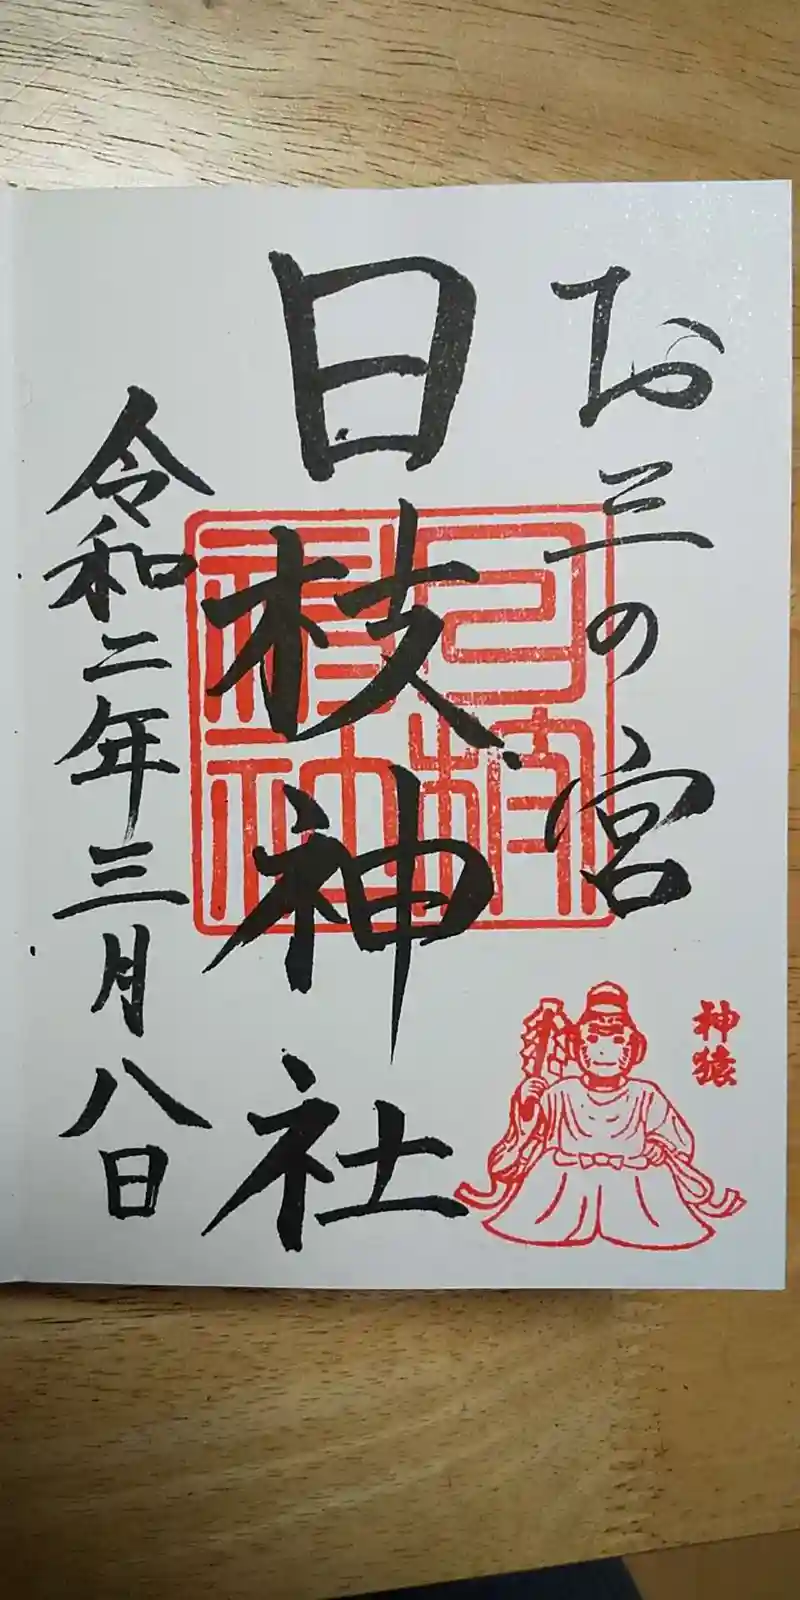 お三の宮
日枝神社
令和二年三月八日
神猿
日枝神社